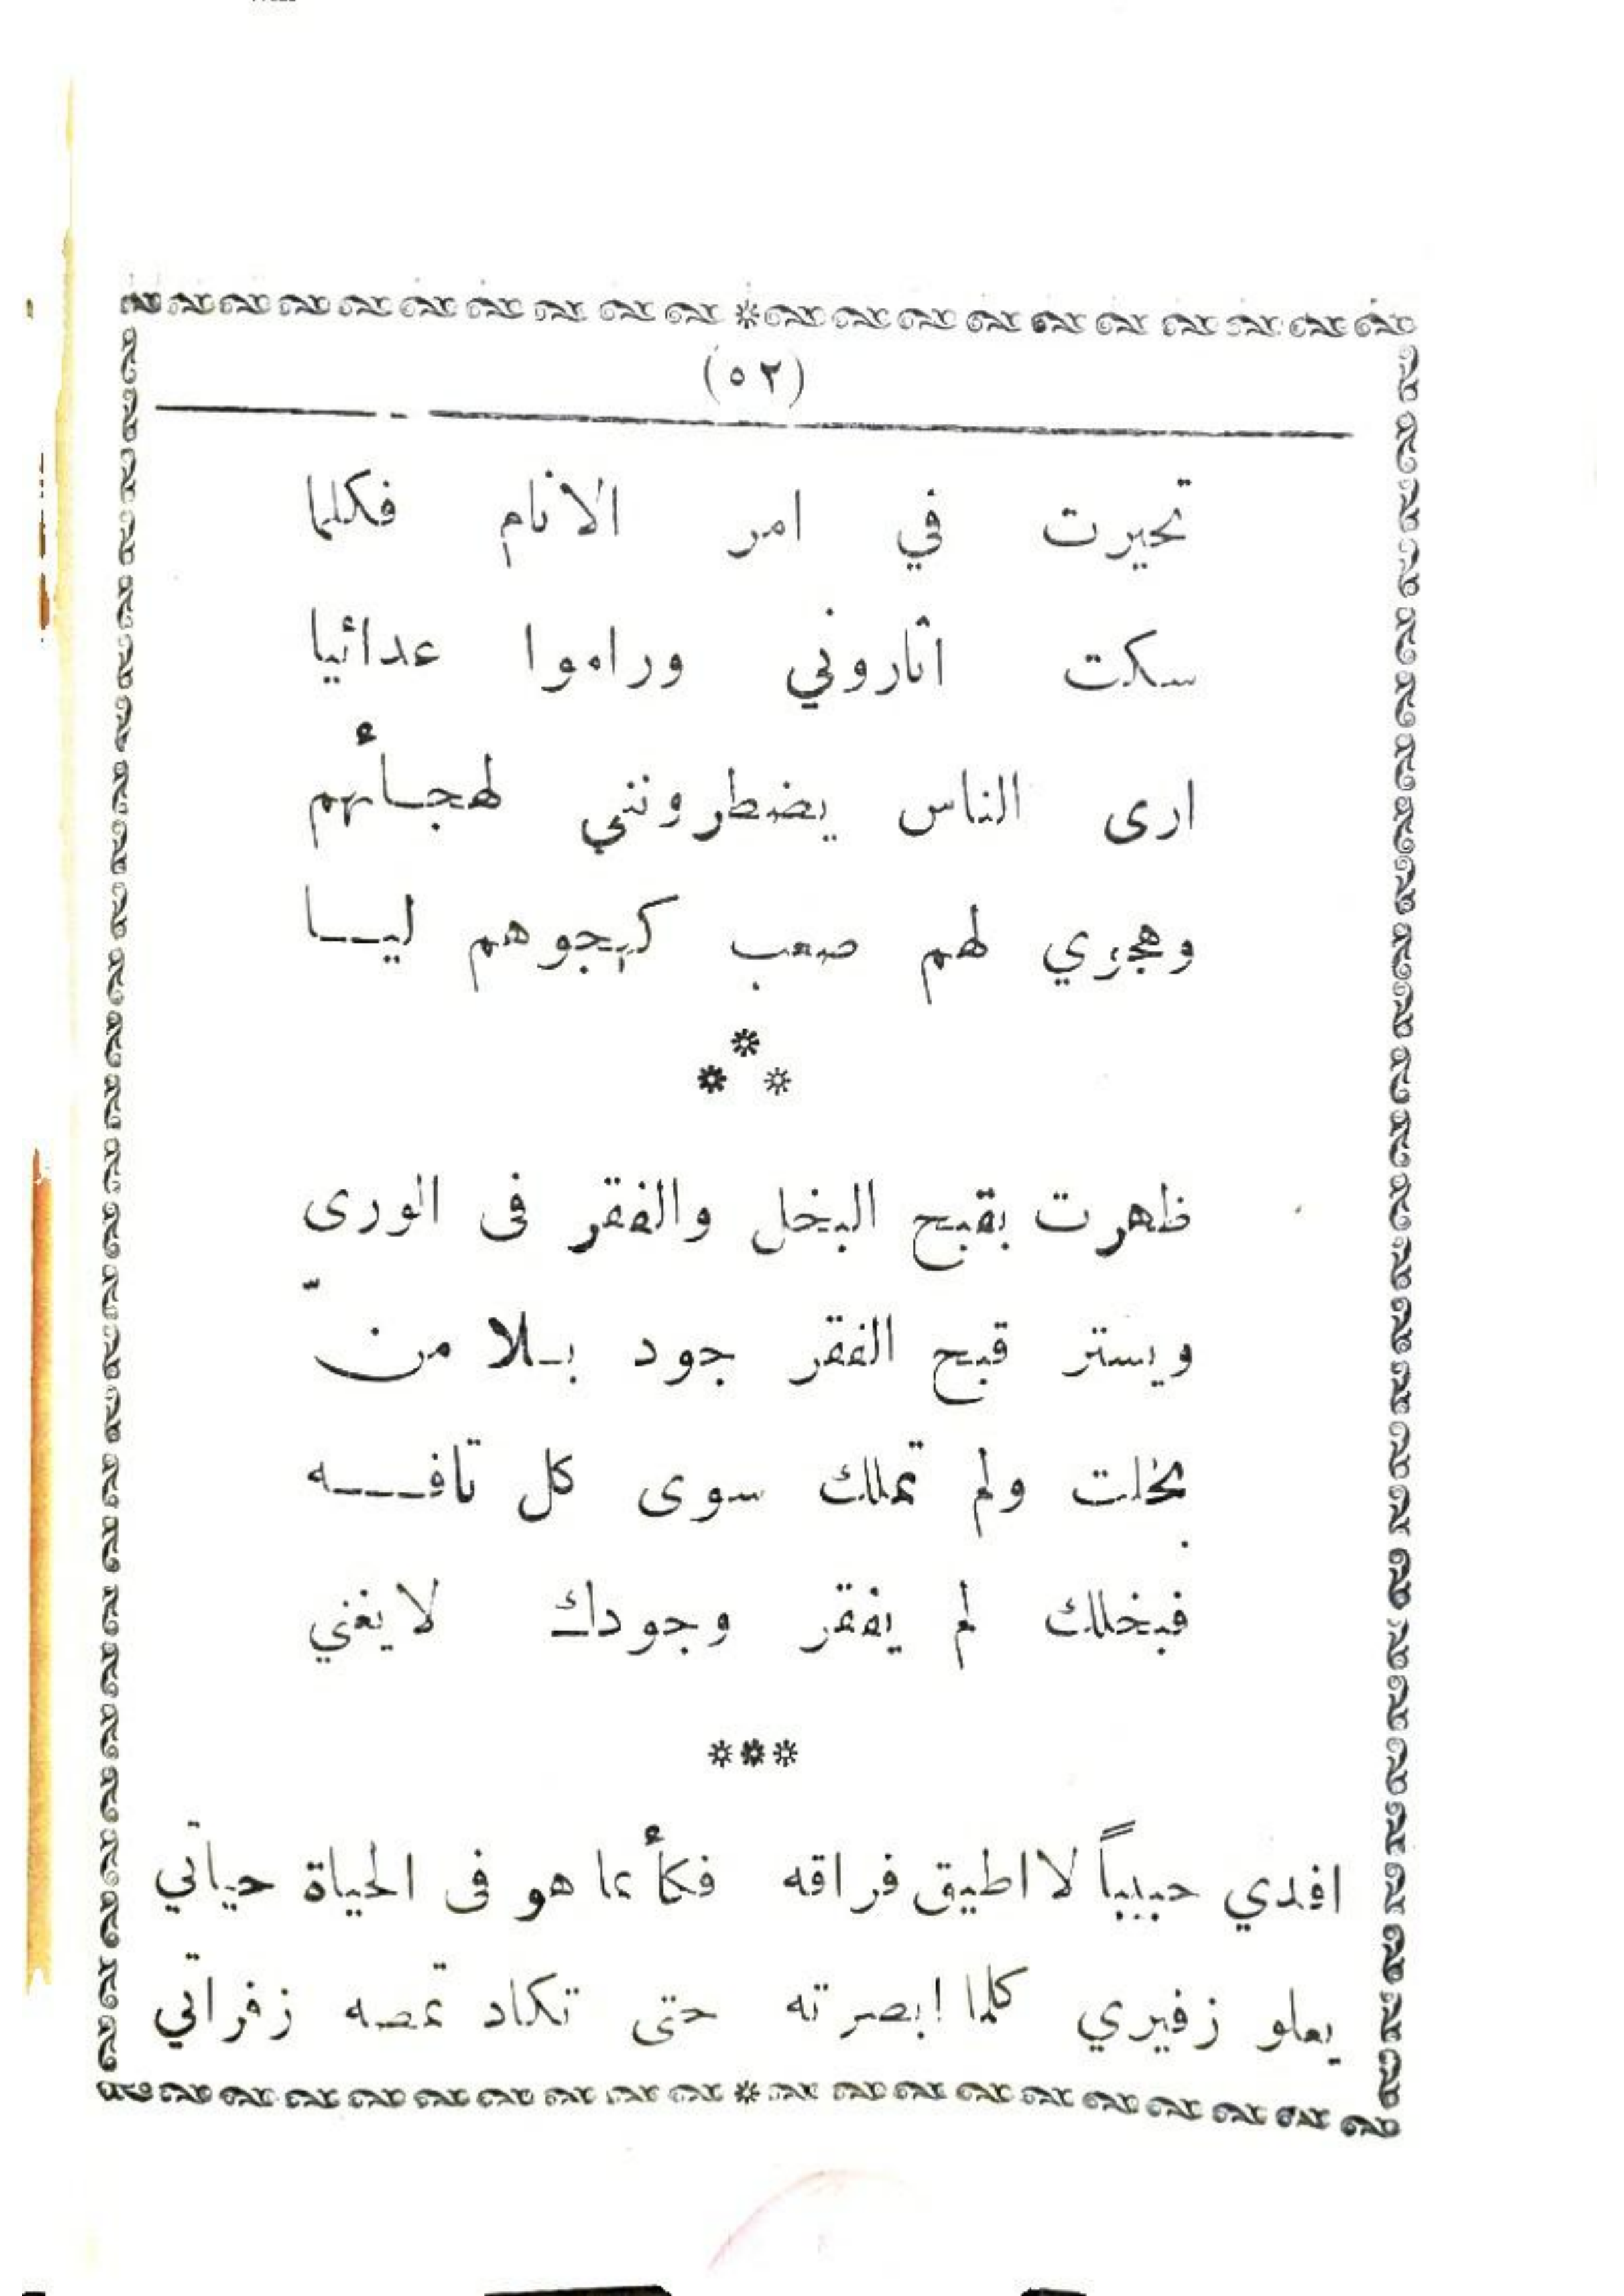 (٥٢)
تحيرت في امر الانام فكلما
سكت اثاروني وراموا عدائيا
ارى الناس يضطرونني لهجأئهم
وهجوي لهم صعب كهجوهم ليا
***
ظهرت بقبح البخل والفقر فى الورى
ويستر قبح الفقر جود بلا منّ
بخلت ولم تملك سوى كل تافه
فبخلك لم يفقر وجودك لايغني
***
افدي حبيباً لا اطيق فراقه فكأنما هو فى الحياة حياتي
يعلو زفيري كلما ابصرته حتى تكاد تمصه زفراتي